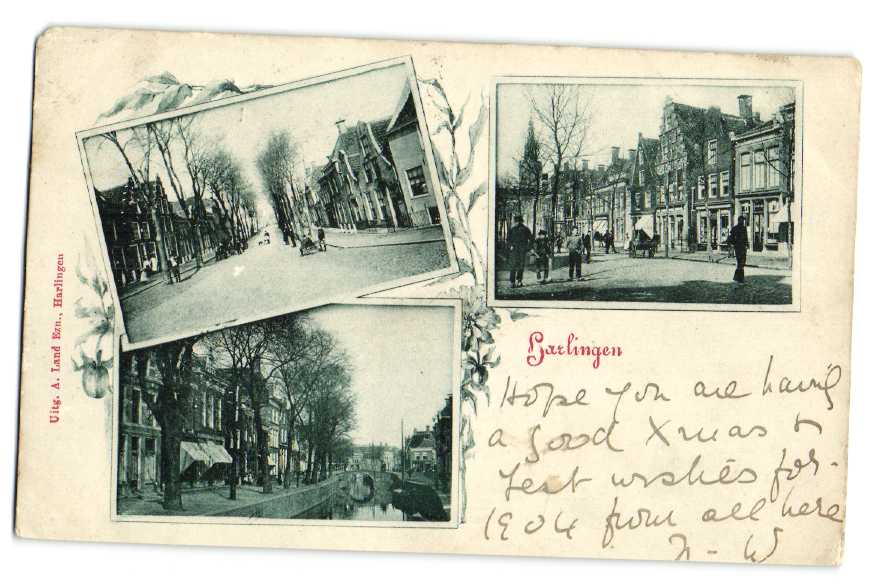 Uitg. A. Land Ezn., Harlingen
Harlingen
Hope you are having
a good Xmas &
best wishes for
1904 from all here